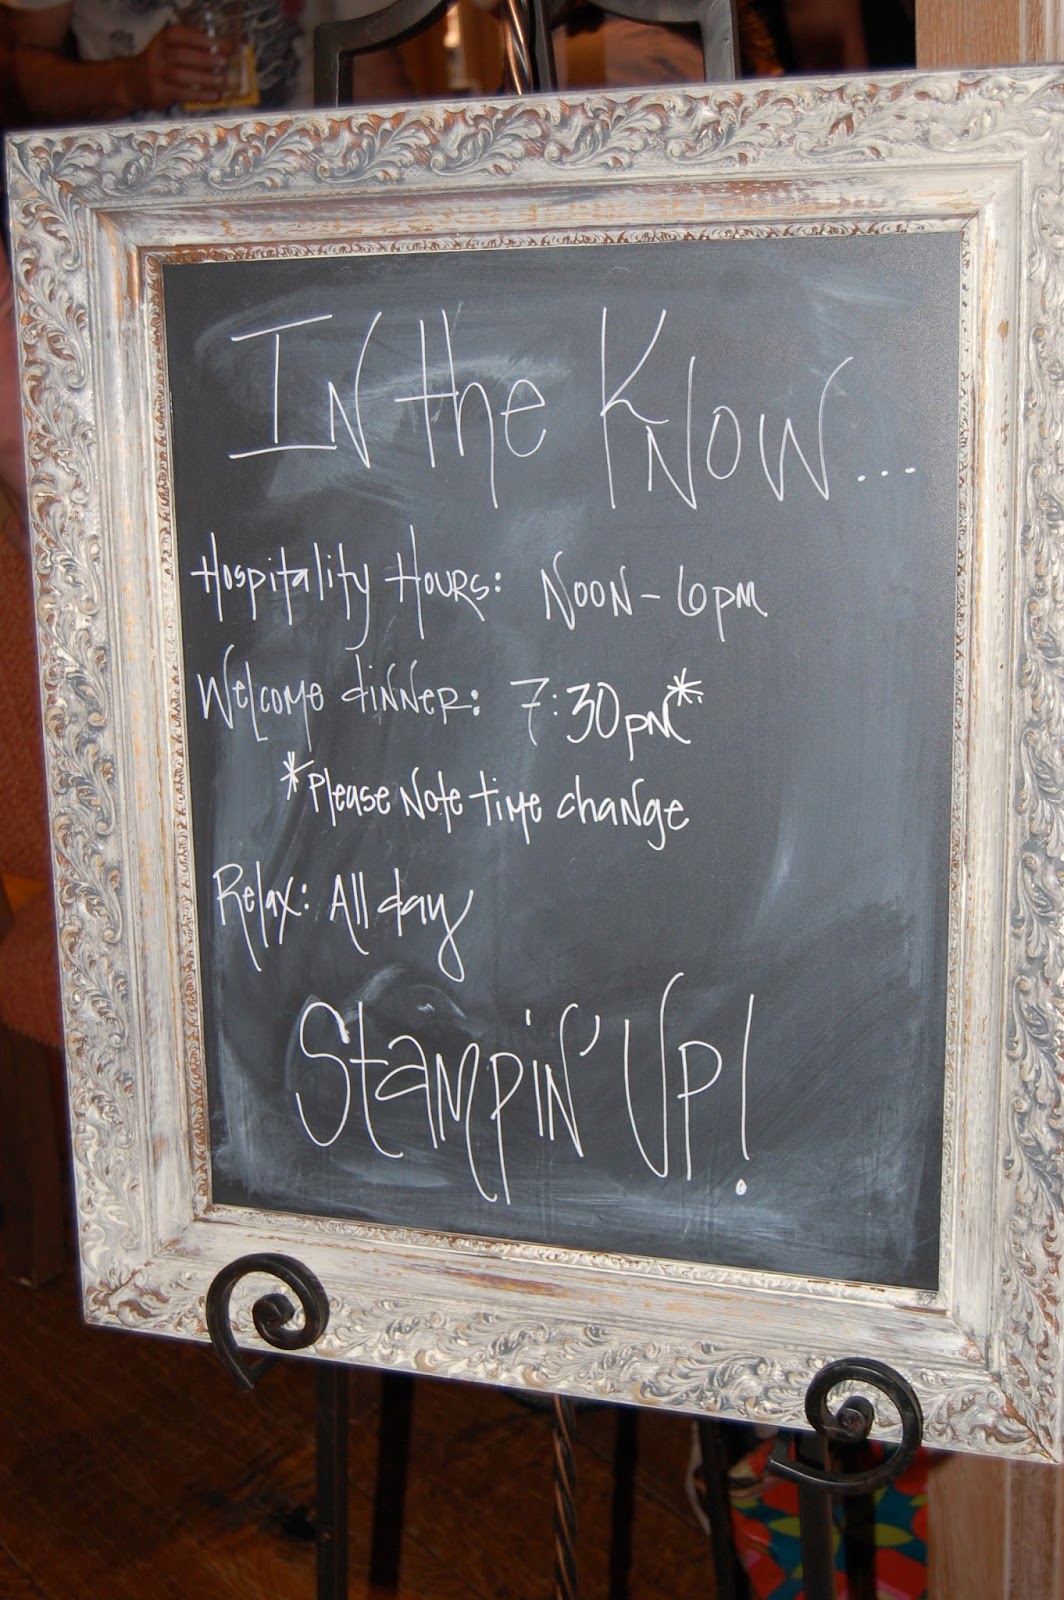 In the Know...
Hospitality Hours: Noon - 6pm
Welcome dinner: 7:30pm*
*Please Note time change
Relax: All day
Stampin' Up!